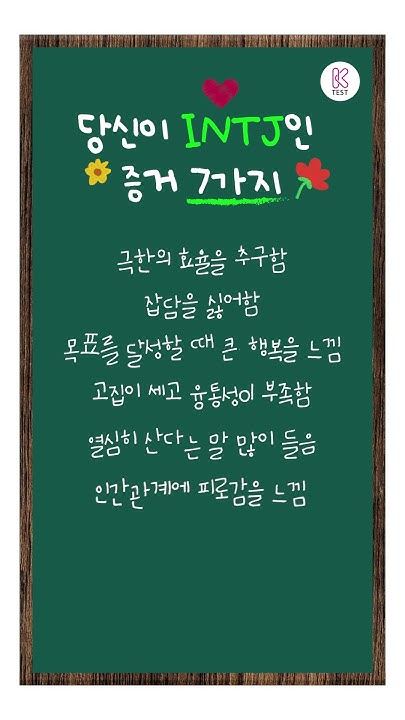 K
TEST
당신이 INTJ인
증거 7가지
극한의 효율을 추구함
잡담을 싫어함
목표를 달성할 때 큰 행복을 느낌
고집이 세고 융통성이 부족함
열심히 산다는 말 많이 들음
인간관계에 피로감을 느낌